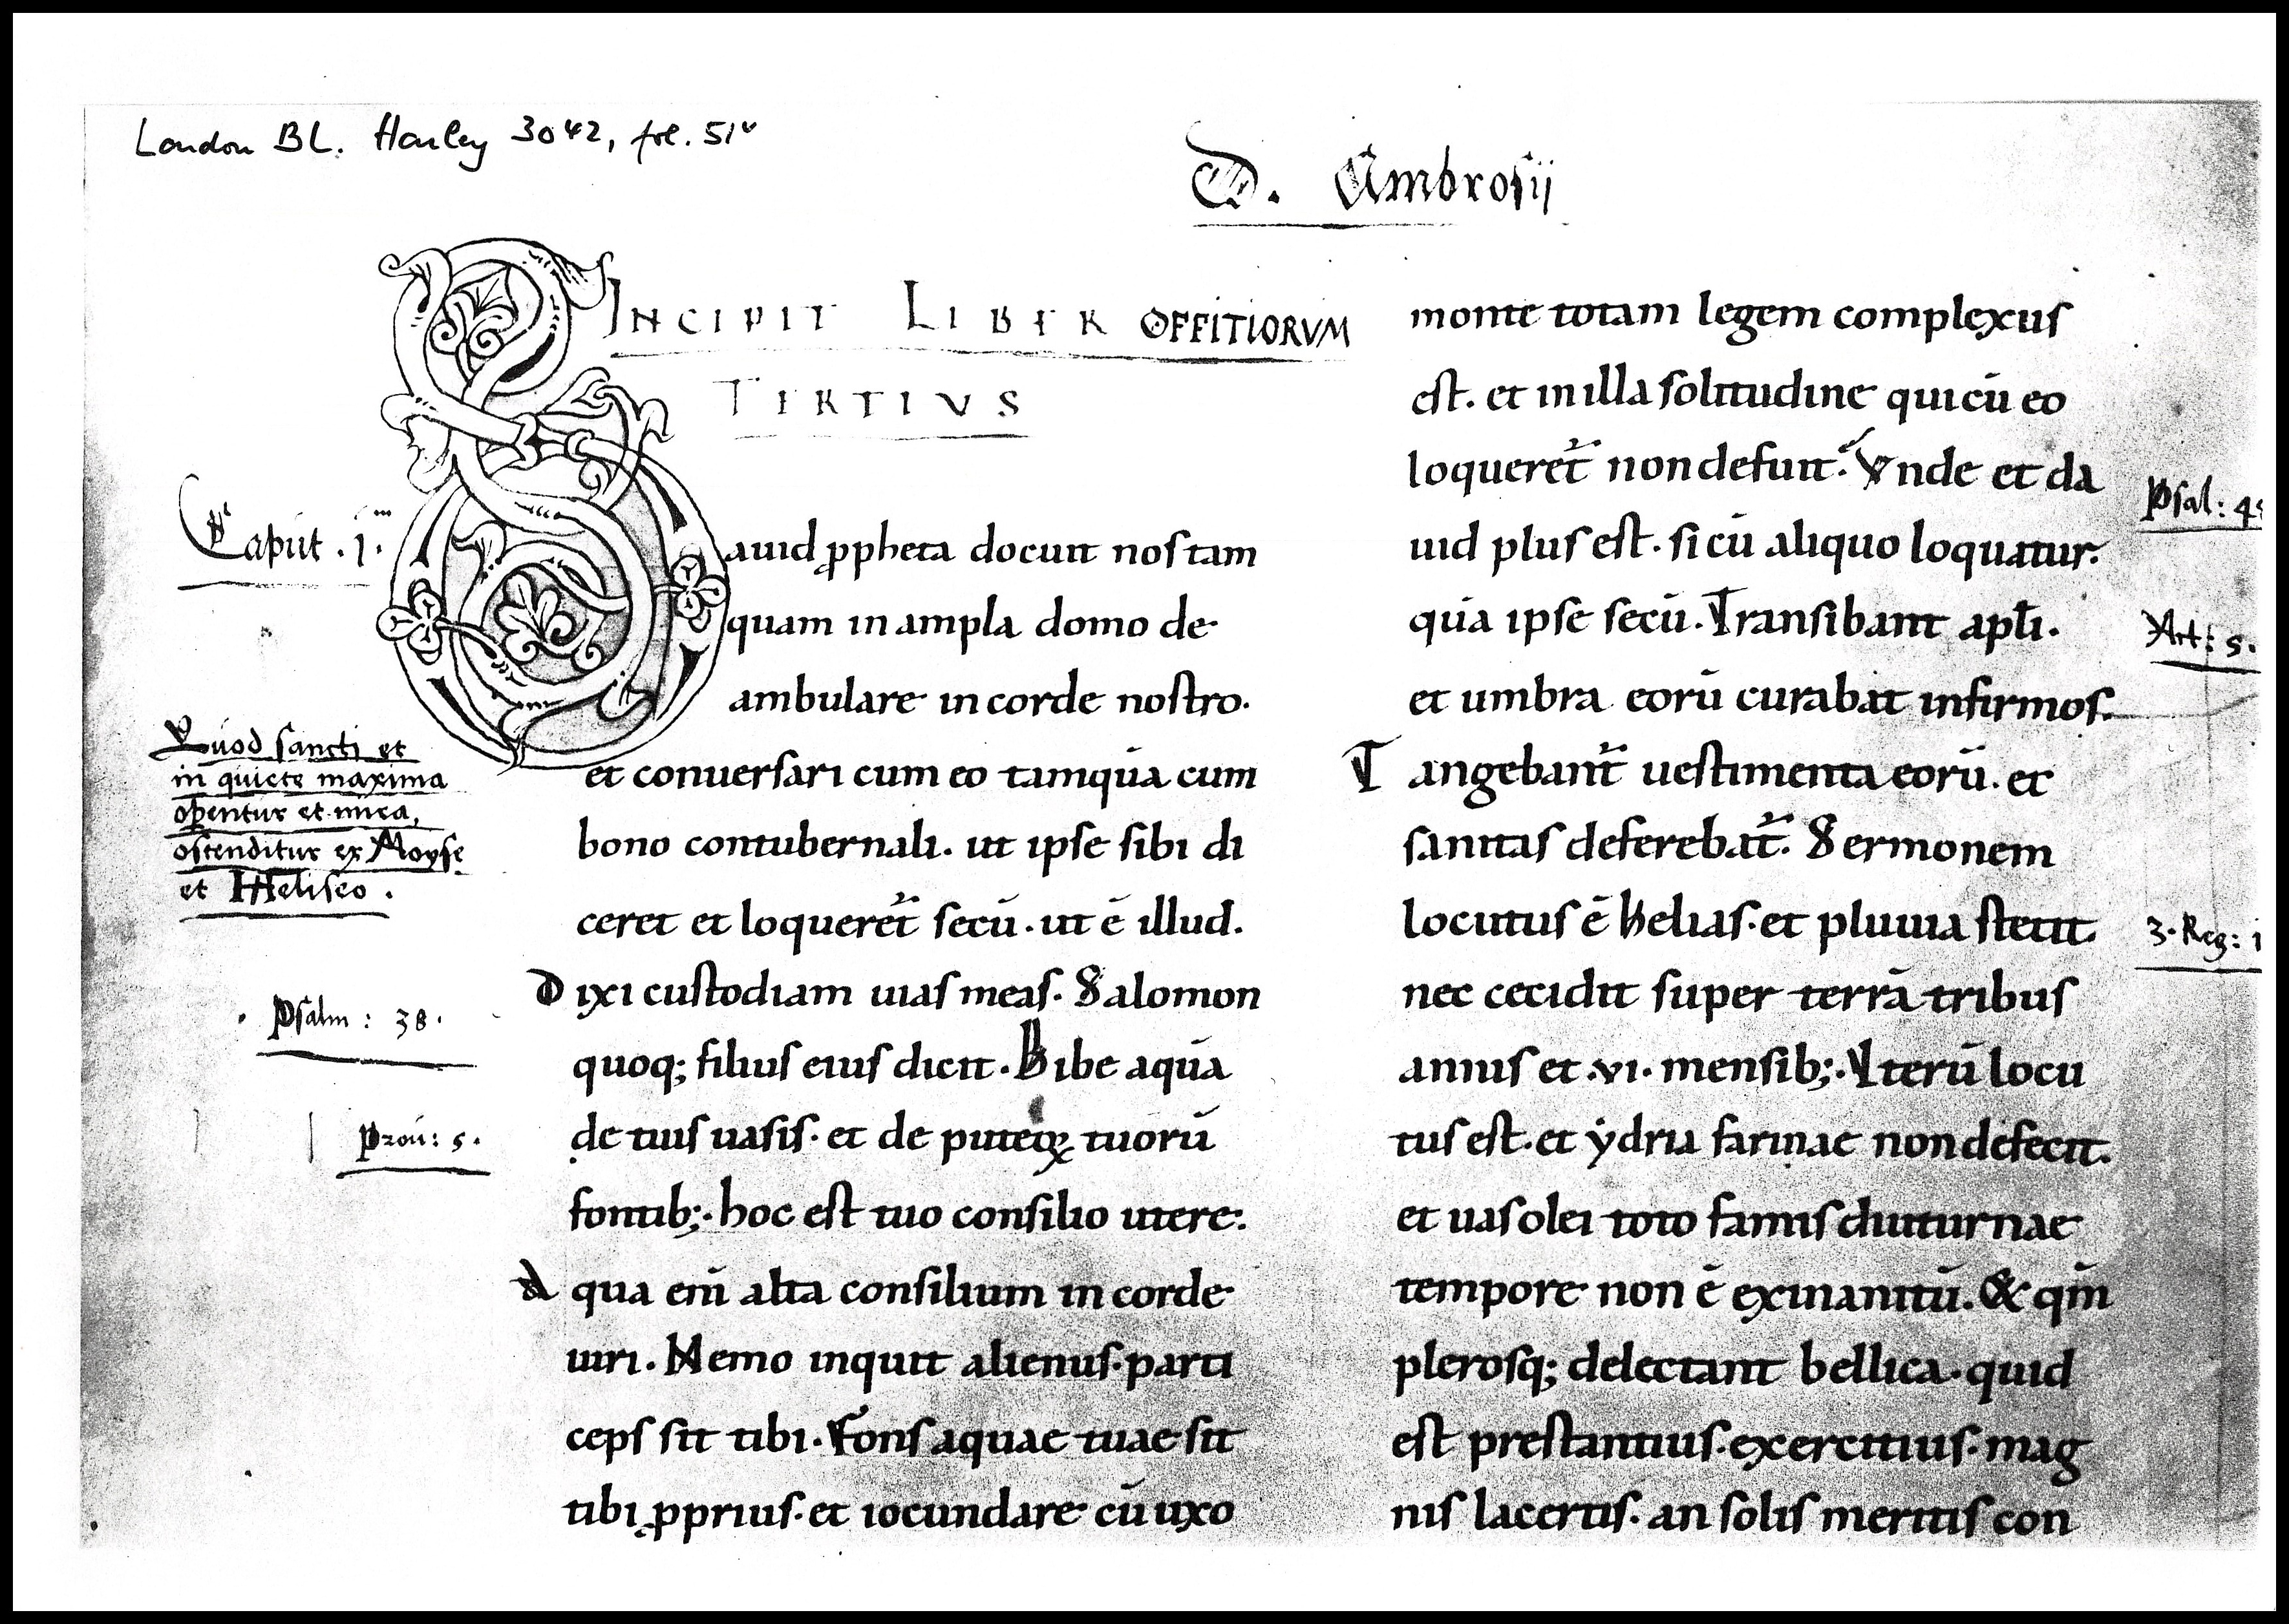 London BL. Harley 3042, fol. 51v
D. Ambrosij
INCIPIT LIBER OFFITIORVM
TERTIVS
Caput .j.
Dauid ꝓpheta docuit nos tam
quam in ampla domo de
ambulare in corde nostro.
et conuersari cum eo tamquā cum
bono contubernali. ut ipse sibi di
ceret et loqueret̃ secū. ut ē illud.
Dixi custodiam uias meas. Salomon
quoq; filius eius dicit. Bibe aquā
de tuis uasis. et de puteoꝝ tuorū
fontib;. hoc est tuo consilio utere.
Aqua eni͂ alta consilium in corde
uiri. Nemo inquit alienus parti
ceps sit tibi. Fons aquae tuae sit
tibi ꝓprius. et iocundare cū uxo
Quod sancti et
in quiete maxima
operentur et mira,
ostenditur ex Moyse
et Heliseo.
Psalm: 38.
Prou: 5.
monte totam legem complexus
est. et in illa solitudine qui cū eo
loqueret̃ non defuit. Vnde et da
uid plus est. si cū aliquo loquatur.
quā ipse secū. Transibant apłi.
et umbra eorū curabat infirmos.
Tangebant̃ uestimenta eorū. et
sanitas deferebat̃. Sermonem
locutus ē helias. et pluuia stetit.
nec cecidit super terrā tribus
annis et .vi. mensib;. Iterū locu
tus est. et ẏdria farinae non defecit.
et uas olei toto famis diuturnae
tempore non ē exinanitū. & qm̄
plerosq; delectant bellica. quid
est prestantius. exercitius. mag
nis lacertis. an solis meritis con
Psal: 4
Act: 5.
3. Reg: 1